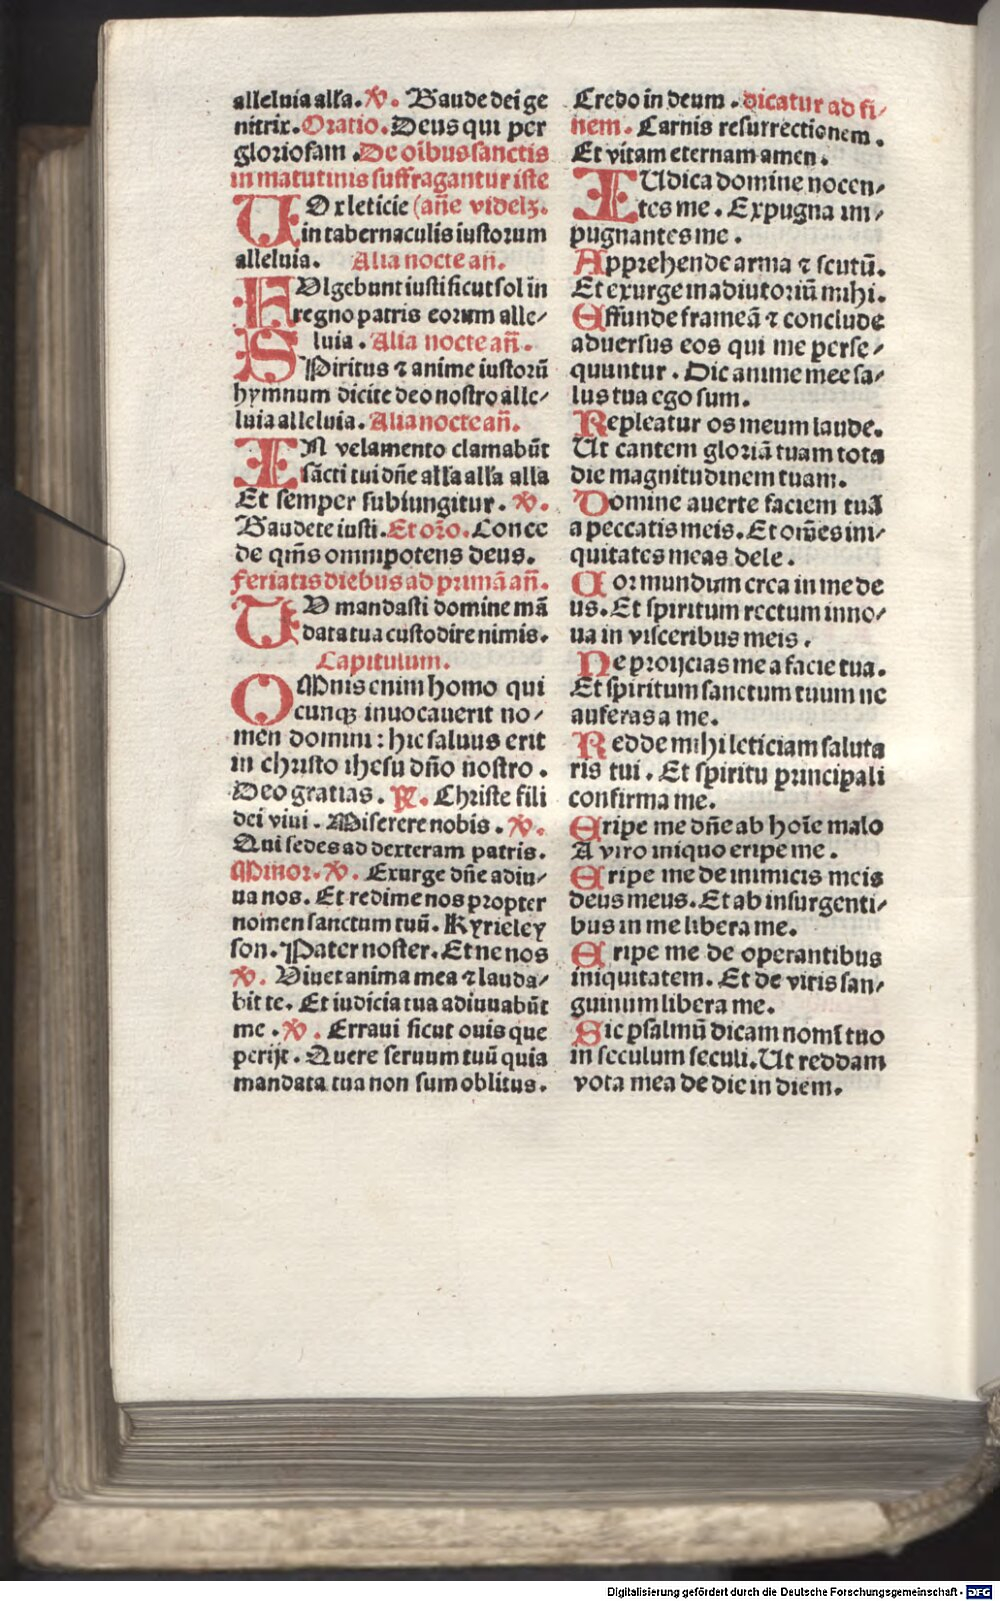 alleluia alľa. ℣. Gaude dei ge
nitrix. Oratio. Deus qui per
gloriosam. De oībus sanctis
in matutinis suffragantur iste
VOx leticie (añe videlꝫ.
in tabernaculis iustorum
alleluia. Alia nocte añ.
FUlgebunt iusti sicut sol in
regno patris eorum alle/
luia. Alia nocte añ.
SPiritus ⁊ anime iustorū
hymnum dicite deo nostro alle/
luia alleluia. Alia nocte añ.
IN velamento clamabūt
sācti tui dñe alľa alľa alla
Et semper subiungitur. ℣.
Gaudete iusti. Et orõ. Conce
de qm̄s omnipotens deus.
feriatis diebus ad primā añ.
TU mandasti domine mā
data tua custodire nimis.
Capitulum.
OMnis enim homo qui
cunqꝫ inuocauerit no/
men domini: hic saluus erit
in christo ihesu dño nostro.
Deo gratias. ℟. Christe fili
dei viui. Miserere nobis. ℣.
Qui sedes ad dexteram patris.
Minor. ℣. Exurge dñe adiu/
ua nos. Et redime nos propter
nomen sanctum tuū. Kyrieley
son. Pater noster. Et ne nos
℣. Viuet anima mea ⁊ lauda/
bit te. Et iudicia tua adiuuabūt
me. ℣. Erraui sicut ouis que
perijt. Quere seruum tuū quia
mandata tua non sum oblitus.
Credo in deum. dicatur ad fi/
nem. Carnis resurrectionem.
Et vitam eternam amen.
IUdica domine nocen/
tes me. Expugna im/
pugnantes me.
Apprehende arma ⁊ scutū.
Et exurge in adiutoriū mihi.
Effunde frameā ⁊ conclude
aduersus eos qui me perse/
quuntur. Dic anime mee sa/
lus tua ego sum.
Repleatur os meum laude.
Ut cantem gloriā tuam tota
die magnitudinem tuam.
Domine auerte faciem tuā
a peccatis meis. Et om̄es ini/
quitates meas dele.
Cor mundum crea in me de
us. Et spiritum rectum inno/
ua in visceribus meis.
Ne proijcias me a facie tua.
Et spiritum sanctum tuum ne
auferas a me.
Redde mihi leticiam saluta
ris tui. Et spiritu principali
confirma me.
Eripe me dñe ab hoīe malo
A viro iniquo eripe me.
Eripe me de inimicis meis
deus meus. Et ab insurgenti/
bus in me libera me.
Eripe me de operantibus
iniquitatem. Et de viris san/
guinum libera me.
Sic psalmū dicam nomī tuo
in seculum seculi. Ut reddam
vota mea de die in diem.
Digitalisierung gefördert durch die Deutsche Forschungsgemeinschaft - DFG